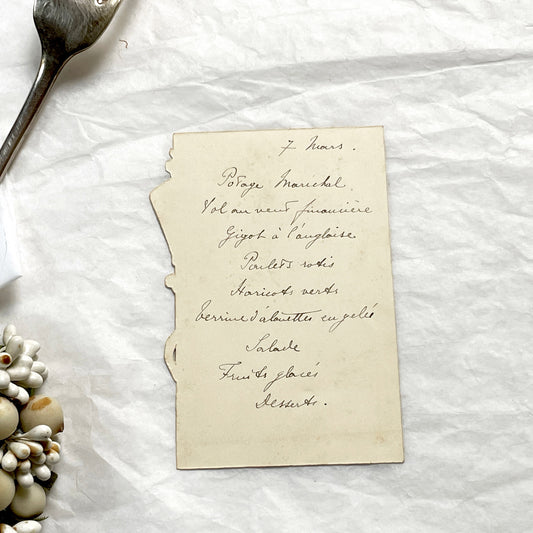 7 Mars.
Potage Maréchal
Vol au vent financière
Gigot à l'anglaise
Poulets rotis
Haricots verts
Terrine d'alouettes en gelée
Salade
Fruits glacés
Desserts.